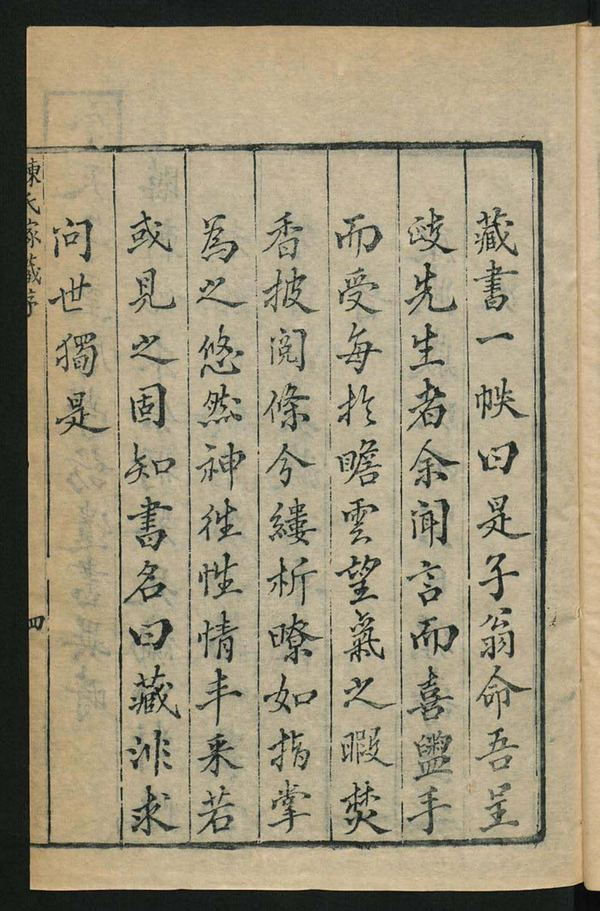 藏書一帙曰是子翁命吾呈
政先生者余闻言而喜盥手
而受每扵瞻雲望氣之暇焚
香披閲條分縷析暸如指掌
為之悠然神徃性情丰采若
或見之固知書名曰藏非求
问世獨是
陳氏家藏序
四